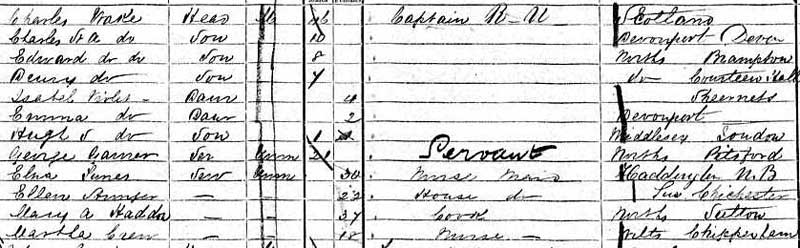 Charles Wake Head M 46 Captain R-N Scotland
Charles St A do Son 10 Devonport Devon
Edward do do Son 8 Norths Brampton
do Son 7 do Courteenhall
Isabel Violet - Daur 4 Sheerness
Emma do Daur 2 Devonport
Hugh do Son 1 Middlesex London
George Garner Ser Unm 21 Servant Norths Pitsford
Ser Unm 30 Nurse Maid Haddington N.B
Ellen — — 22 House do Sus Chichester
Mary A Haddon — — 37 Cook Norths Sutton
Martha Crew — — 18 Nurse — Wilts Chippenham